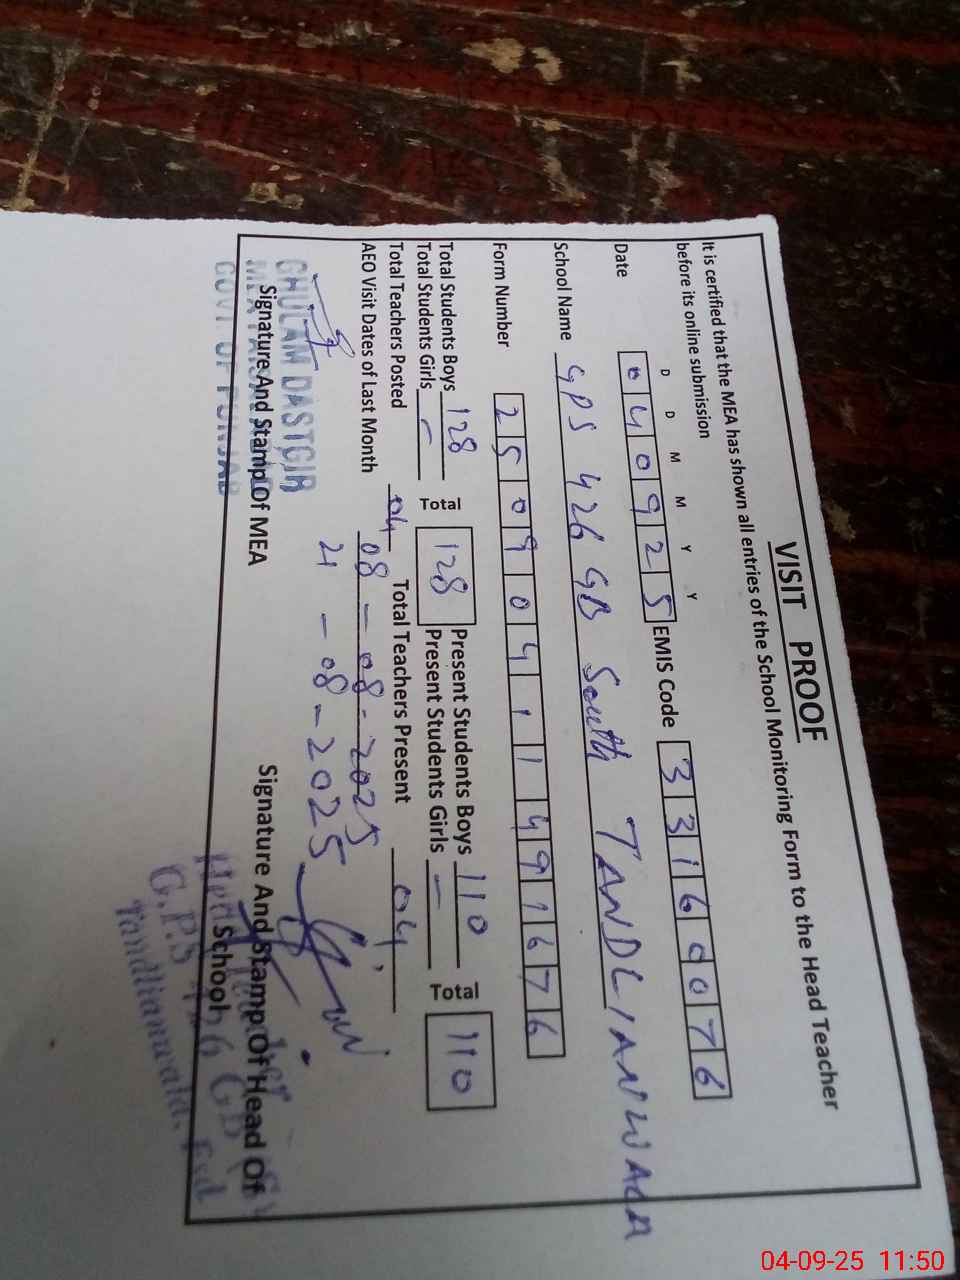 VISIT PROOF
It is certified that the MEA has shown all entries of the School Monitoring Form to the Head Teacher
before its online submission
D D M M Y Y
Date 040925 EMIS Code 33160076
School Name GPS 426 GB South TANDLIANWALA
Form Number 25090411491676
Total Students Boys 128 Total 128 Present Students Boys 110 Total 110
Total Students Girls – Present Students Girls –
Total Teachers Posted 04 Total Teachers Present 04
AEO Visit Dates of Last Month 08 – 08 – 2025
21 – 08 – 2025
GHULAM DASTGIR
Signature And Stamp Of MEA
GOVT OF PUNJAB
Signature And Stamp Of Head Of
School
G.P.S
Tandlianwala
04-09-25 11:50